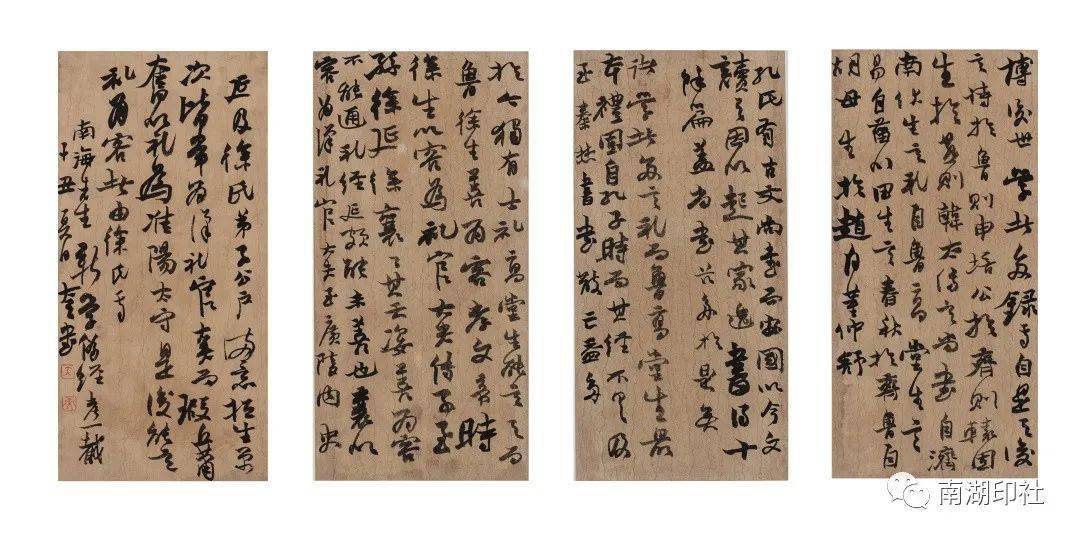 傳後世學者多錄焉自是之後
言詩於魯則申培公於齊則轅固
生於燕則韓太傅言尚書自濟
南伏生言禮自魯高堂生言
易自菑川田生言春秋於齊魯自
胡母生於趙自董仲舒
孔氏有古文尚書而安國以今文
讀之因以起其家逸書得十
餘篇蓋尚書茲多於是矣
諸學者多言禮而魯高堂生最
本禮固自孔子時而其經不具及
至秦焚書書散亡益多
於今獨有士禮高堂生能言之而
魯徐生善為容孝文帝時
徐生以容為禮官大夫傳子至
孫徐延徐襄襄其天姿善為容
不能通禮經延頗能未善也襄以
容為漢禮官大夫至廣陵內史
延及徐氏弟子公戶滿意桓生單
次皆常為漢禮官大夫而瑕丘蕭
奮以禮為淮陽太守是後能言
禮為容者由徐氏焉
南海先生新學偽經考一截
丁丑夏日書
南湖印社